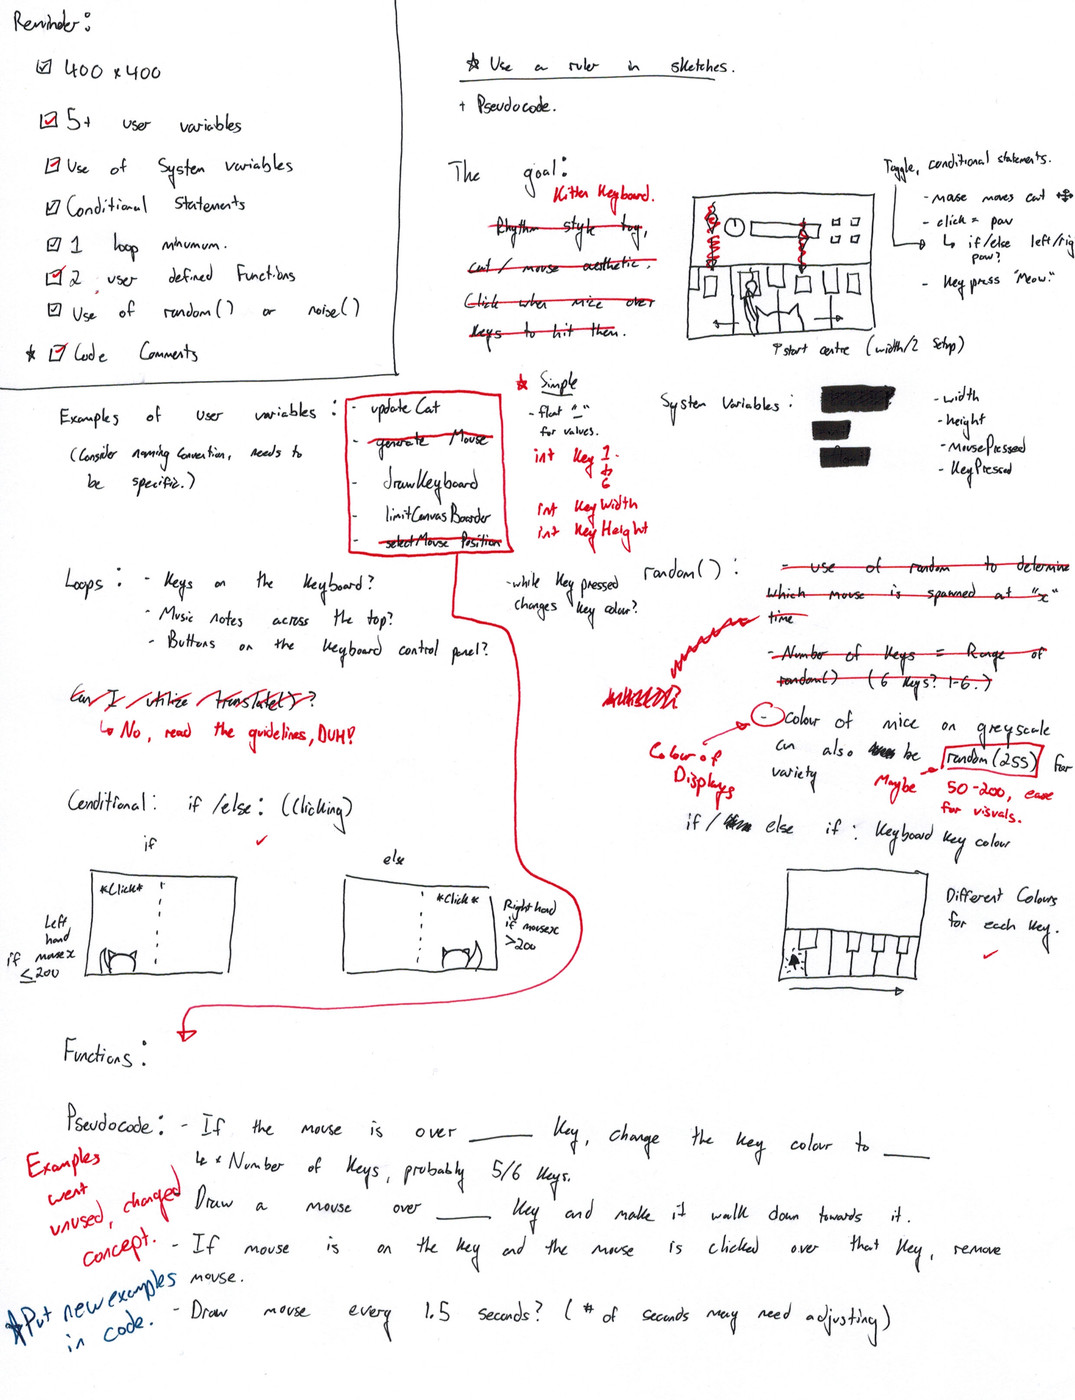 Reminder:
400 x 400
5+ user variables
Use of System variables
Conditional Statements
1 loop minumum.
2 user defined Functions
Use of random() or noise()
* Code Comments
* Use a ruler in sketches.
+ Pseudocode.
The goal:
Kitten Keyboard.
Rhythm style toy,
cat / mouse aesthetic.
Click when mice over
Keys to hit them.
Toggle, conditional statements.
- mouse moves cat
- click = paw
↳ if/else left/rig
paw?
- Key press "Meow."
↑ start centre (width/2 setup)
Examples of user variables:
(Consider naming convention, needs to
be specific.)
- update Cat
- generate Mouse
- drawKeyboard
- limitCanvasBoarder
- selectMouse Position
* Simple
- float "_"
for values.
int Key 1.
to
6
int KeyWidth
int KeyHeight
System Variables:
- width
- height
- MousePressed
- KeyPressed
Loops: - Keys on the Keyboard?
- Music notes across the top?
- Buttons on the Keyboard control panel?
- while Key pressed
changes Key colour?
random():
- use of random to determine
which mouse is spawned at "x"
time
- Number of Keys = Range of
random() (6 Keys? 1-6.)
Can I utilize translate()?
↳ No, read the guidelines, DUH!
- Colour of mice on greyscale
can also be random(255) for
variety
Colour of
Displays
Maybe 50-200, ease
for visuals.
if / else if: Keyboard Key colour
Conditional: if /else: (Clicking)
if
*Click*
Left
hand
if mouseX
≤200
else
*Click*
Right hand
if mouseX
>200
Different Colours
for each Key.
Functions:
Pseudocode: - If the mouse is over ____ Key, change the Key colour to ____
↳ * Number of Keys, probably 5/6 Keys.
Draw a mouse over ____ Key and make it walk down towards it.
- If mouse is on the Key and the mouse is clicked over that Key, remove
mouse.
- Draw mouse every 1.5 seconds? (# of seconds may need adjusting)
Examples
went
unused, changed
concept.
*Put new examples
in code.